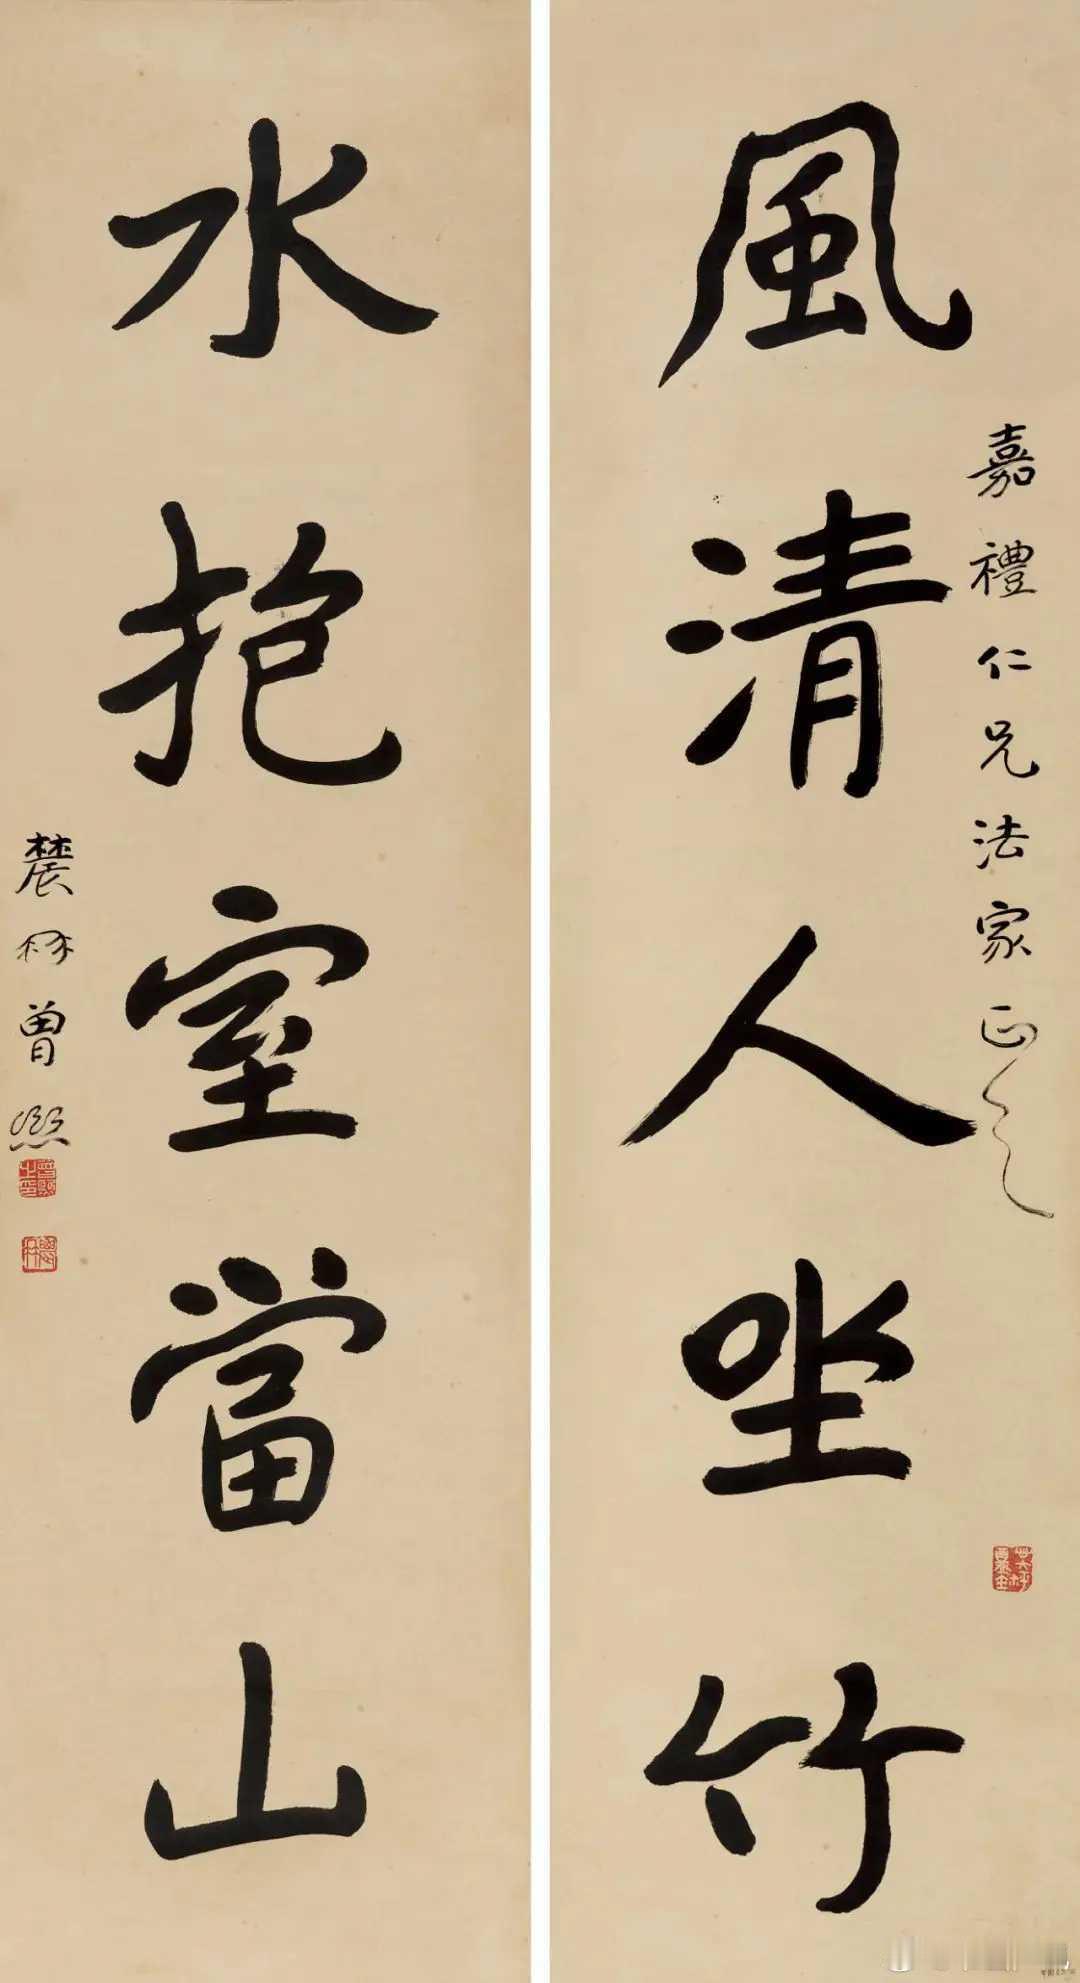 風清人坐竹
嘉禮仁兄法家正之
水抱室當山
農髯曾熙